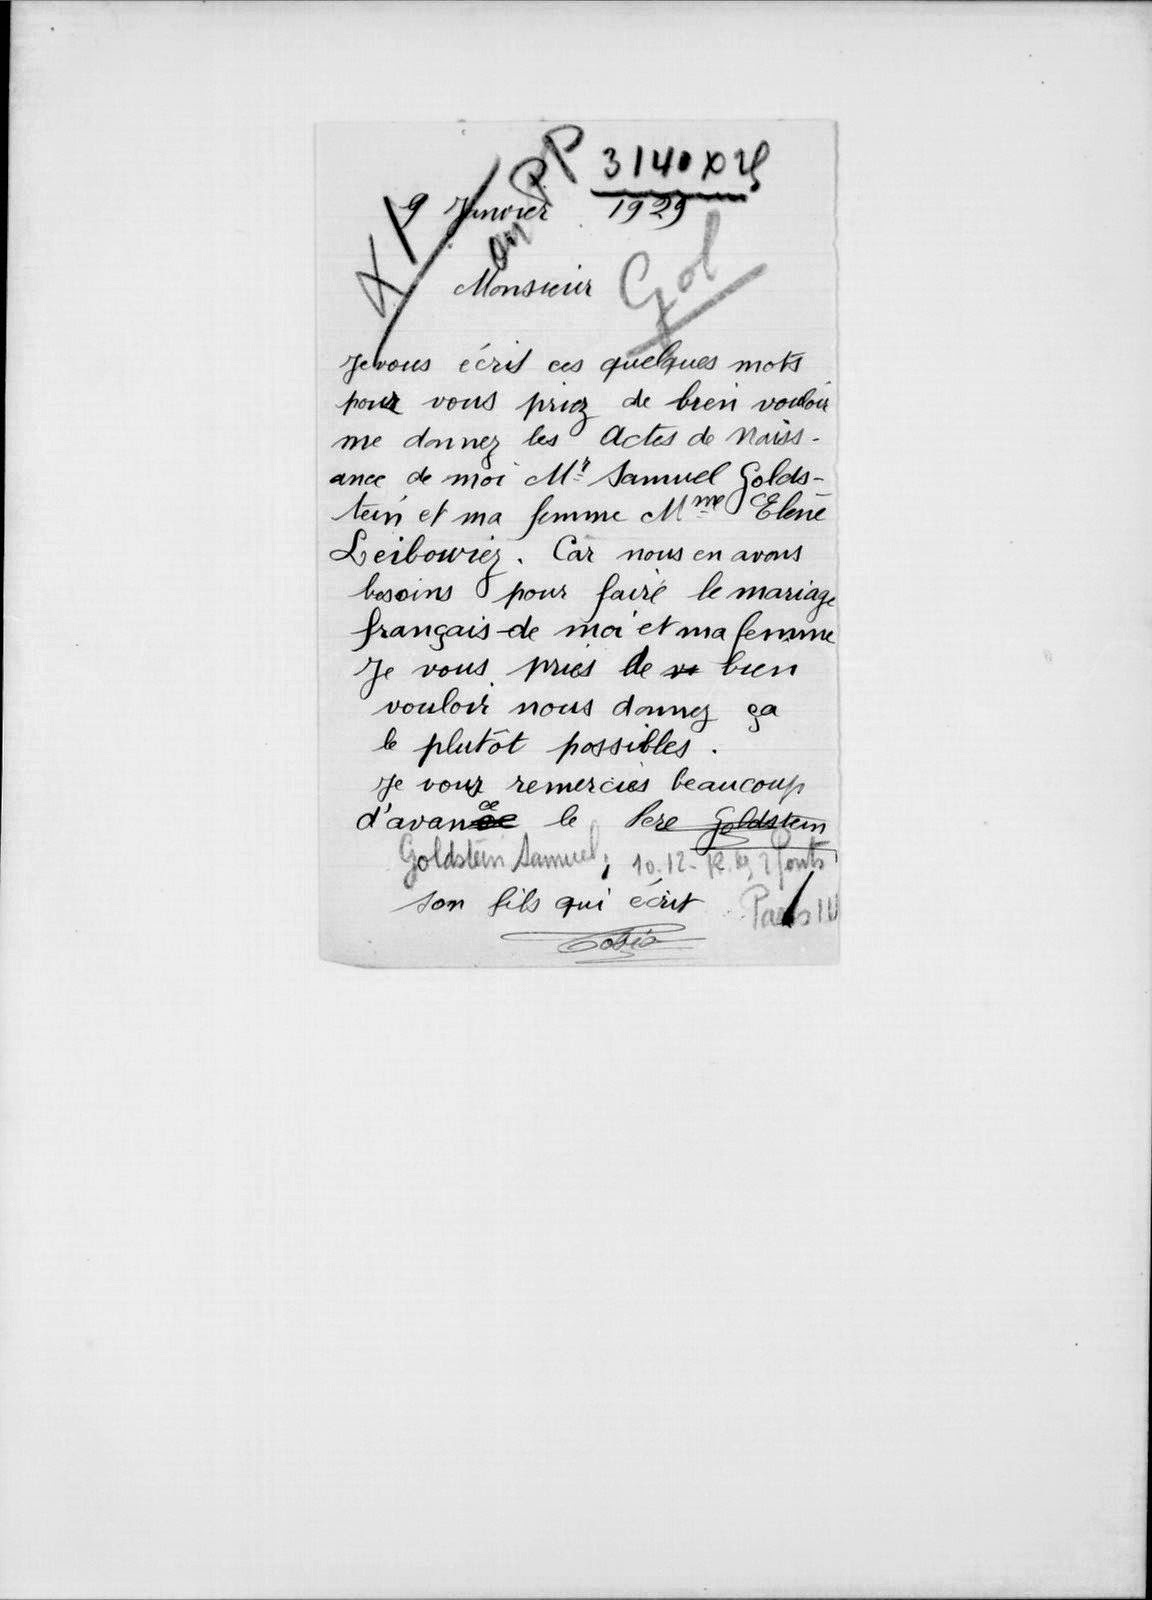 au PP
3140 x 29
9 Janvier 1929
Gol
Monsieur
Je vous écrit ces quelques mots
pour vous priez de bien vouloir
me donnez les Actes de Naiss-
ance de moi Mr Samuel Golds-
tein et ma femme Mme Elene
Leibowiez. Car nous en avons
besoins pour faire le mariage
français de moi et ma femme
Je vous pries de bien
vouloir nous donnez ça
le plutôt possibles.
Je vous remercies beaucoup
d'avance le Pere Goldstein
Goldstein Samuel, 10.12- R. 2 Ponts
Paris IV
son fils qui écrit